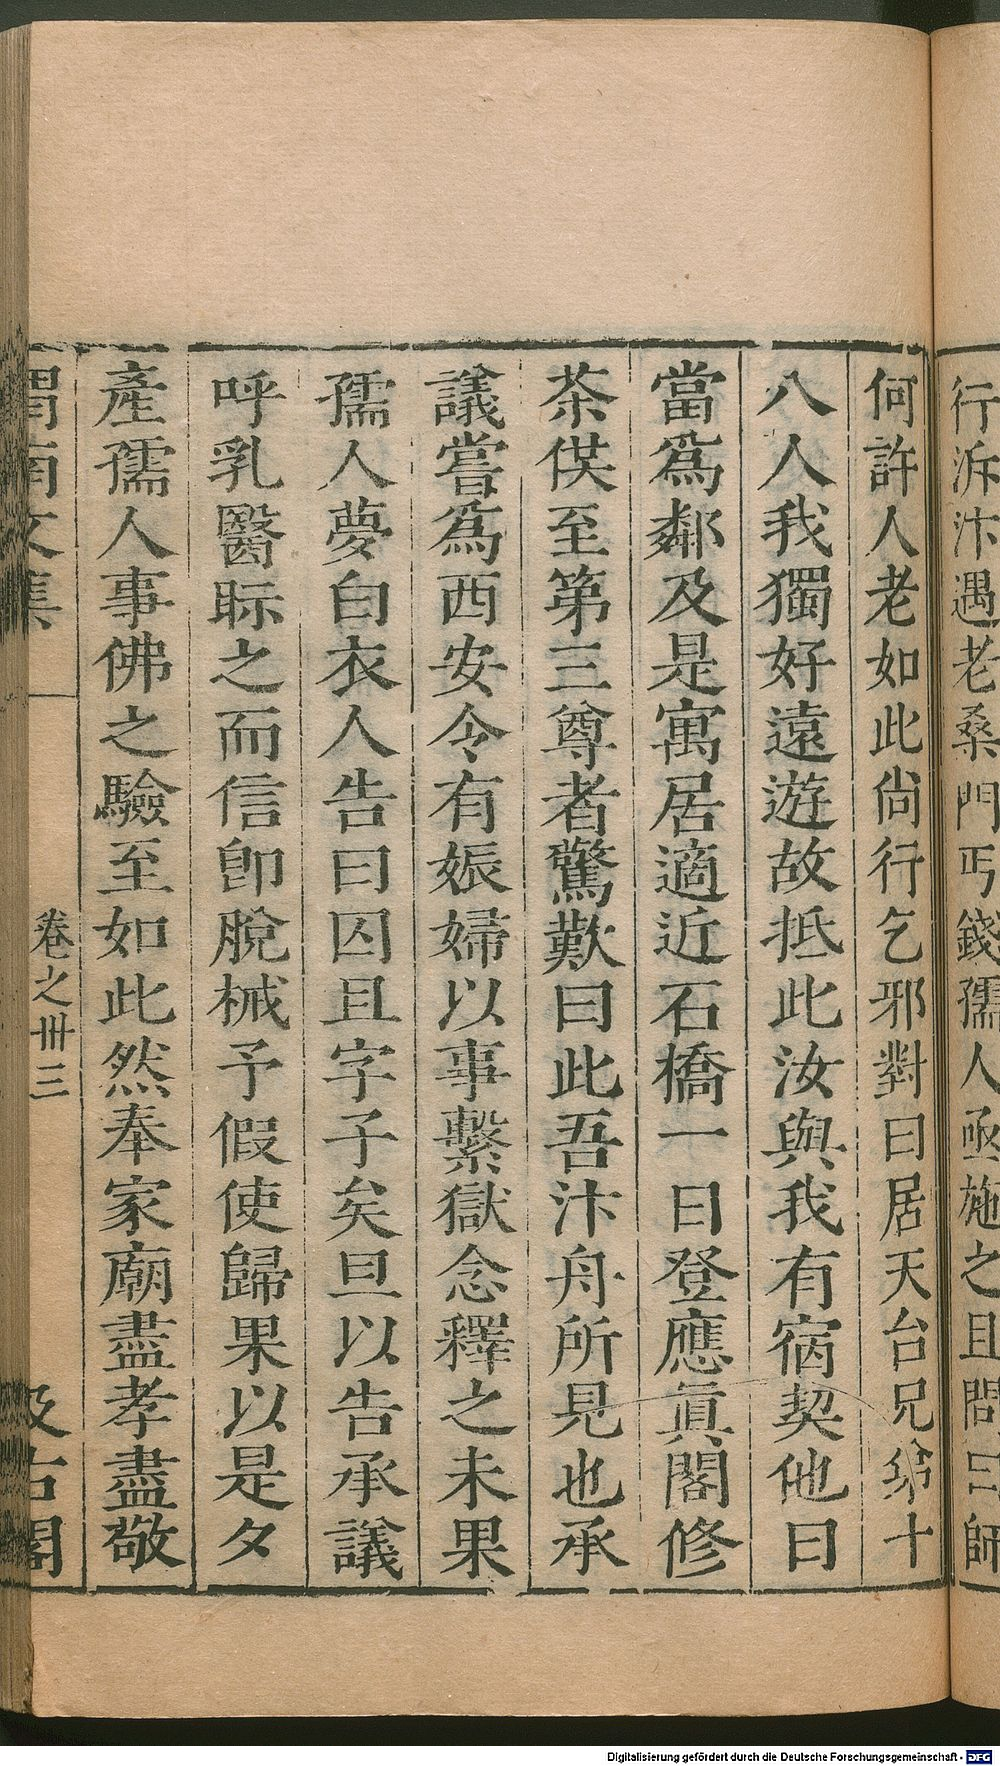 行泝汴遇老桑門丐錢孺人亟施之且問曰師
何許人老如此尚行乞邪對曰居天台兄弟十
八人我獨好遠遊故抵此汝與我有宿契他日
當爲鄰及是寓居適近石橋一日登應眞閣修
茶供至第三尊者驚歎曰此吾汴舟所見也承
議嘗爲西安令有娠婦以事繫獄念釋之未果
孺人夢白衣人告曰囚且字子矣旦以告承議
呼乳醫眎之而信卽脫械予假使歸果以是夕
產孺人事佛之驗至如此然奉家廟盡孝盡敬
渭南文集 卷之卅三 汲古閣
Digitalisierung gefördert durch die Deutsche Forschungsgemeinschaft - DFG